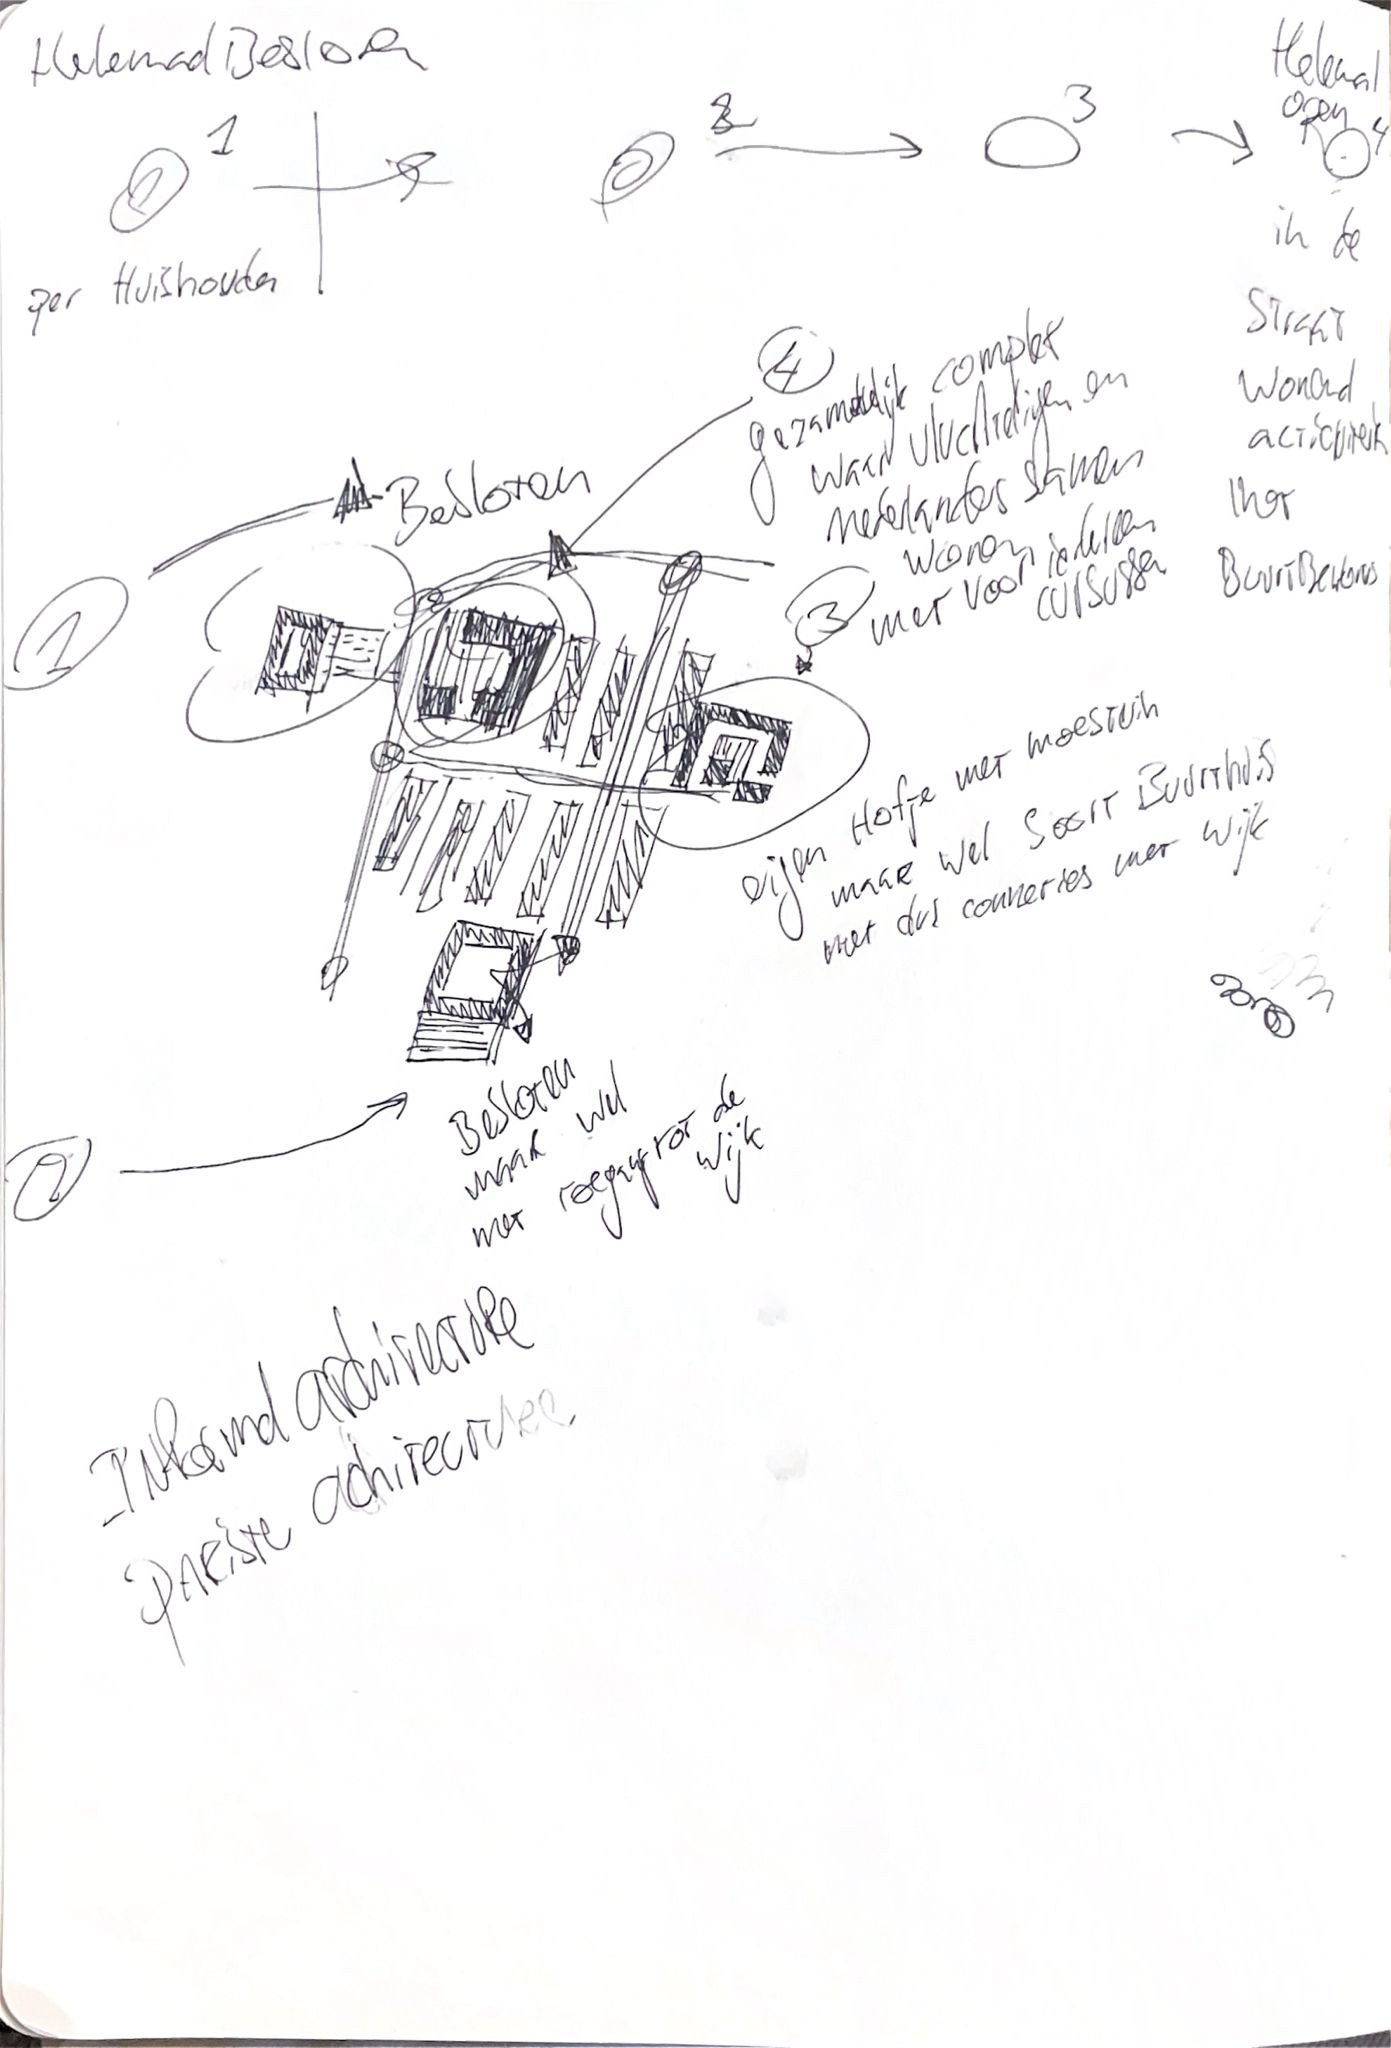 Helemaal Besloten
1
2
3
Helemaal
open
4
per Huishouden
in de
Straat
Wonend
Buurtbewoners
4
gezamelijk complex
waar vluchtelingen en
nederlanders samen
wonen
met voor iedereen
cursussen
Besloten
1
3
eigen Hofje met moestuin
maar wel Soort Buurthuis
met dus connecties met wijk
2
Besloten
maar wel
met toegang tot de
wijk
Informal architecture